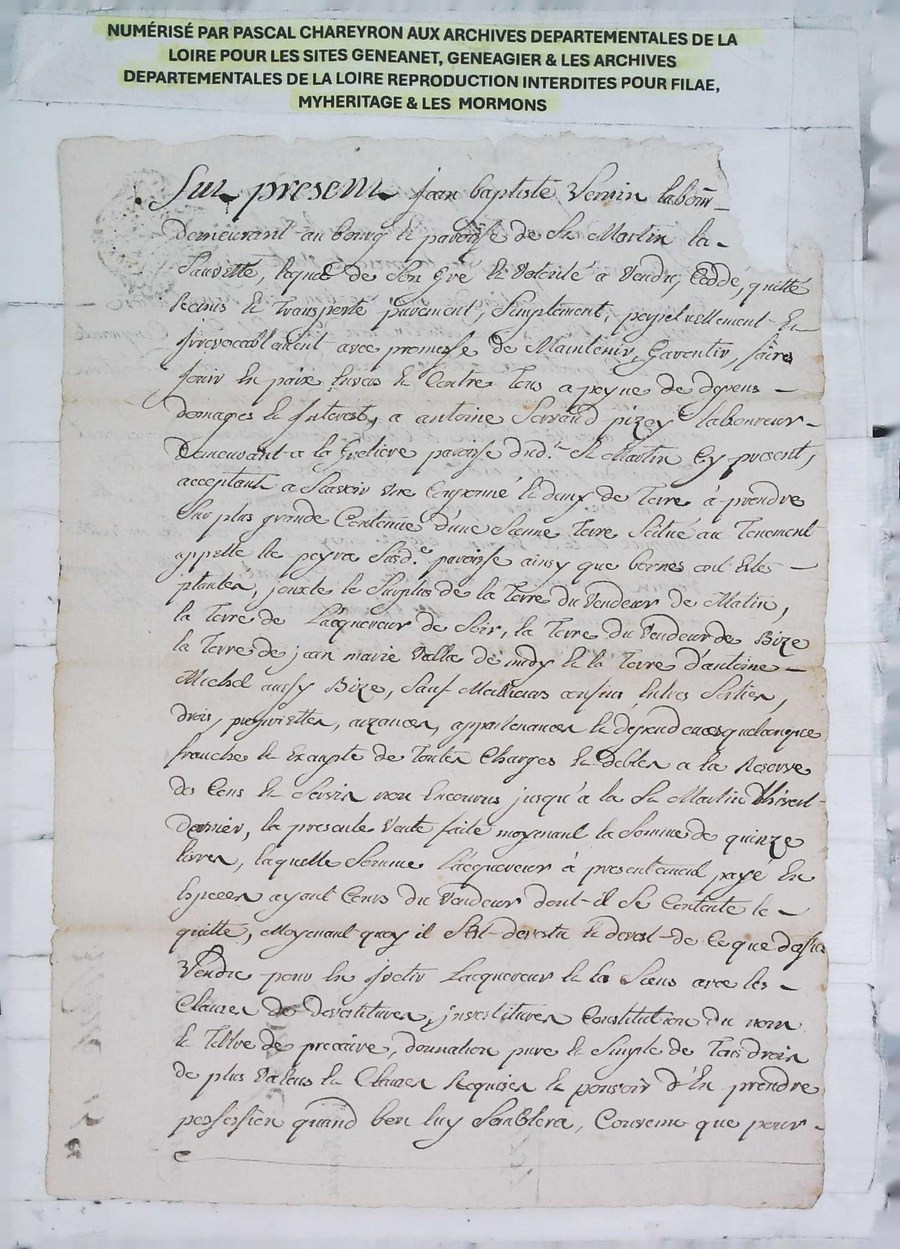 NUMÉRISÉ PAR PASCAL CHAREYRON AUX ARCHIVES DEPARTEMENTALES DE LA
LOIRE POUR LES SITES GENEANET, GENEAGIER & LES ARCHIVES
DEPARTEMENTALES DE LA LOIRE REPRODUCTION INTERDITES POUR FILAE,
MYHERITAGE & LES MORMONS
present Jean baptiste Vernin labour
Demeurant au bourg et paroisse de St Martin la
Sauvetté, lequel de son gré et volonté a vendu, Ceddé, quitté
Remis et transporté purement, simplement, perpetuellement et
irrevocablement avec promesse de Maintenir, Garentir, faire
Jouir en paix envers et Contre tous a peyne de depens
domages et Interests, a antoine pizay laboureur
Demeurant a la parroisse dud. St Martin Cy present,
acceptant a Scavoir une Couponné et deux de terre à prendre
Sur plus grande Contenue d'une Sienne terre Scitué au Tenement
appellé parroisse ainsy que bornes ont estes
plantés, jouxte le Surplus de la terre du Vendeur de Matin,
la terre de L'acquereur de Soir, la terre du Vendeur de Bize
la terre de jean marie de midy et la terre d'antoine
Michel aussy Bize, Sauf Meilleurs confins Entres Sorties,
droits, aizances, appartenances et dependences quelconque
franche et Exempte de toutes Charges et debtes a la Reserve
de Cens et Servis non Encourus jusqu'a la St Martin
dernier, la presente Vente faite moyenant la Somme de quinze
livres, laquelle Somme L'acquereur à presentement payé En
Especes ayant Cours du Vendeur dont il Se Contente le
quitte, Moyenant quoy il S'est devestu et devest de Ce que dessus
Vendu pour En Lacquereur et les Siens avec les
Clauses de devestitures, investitures Constitution du nom
et Titre de precaire, donnation pure et Simple de tous droits
de plus Values et Clauses Requises et pouvoir d'En prendre
possession quand bon luy Semblera, Convenu que pour